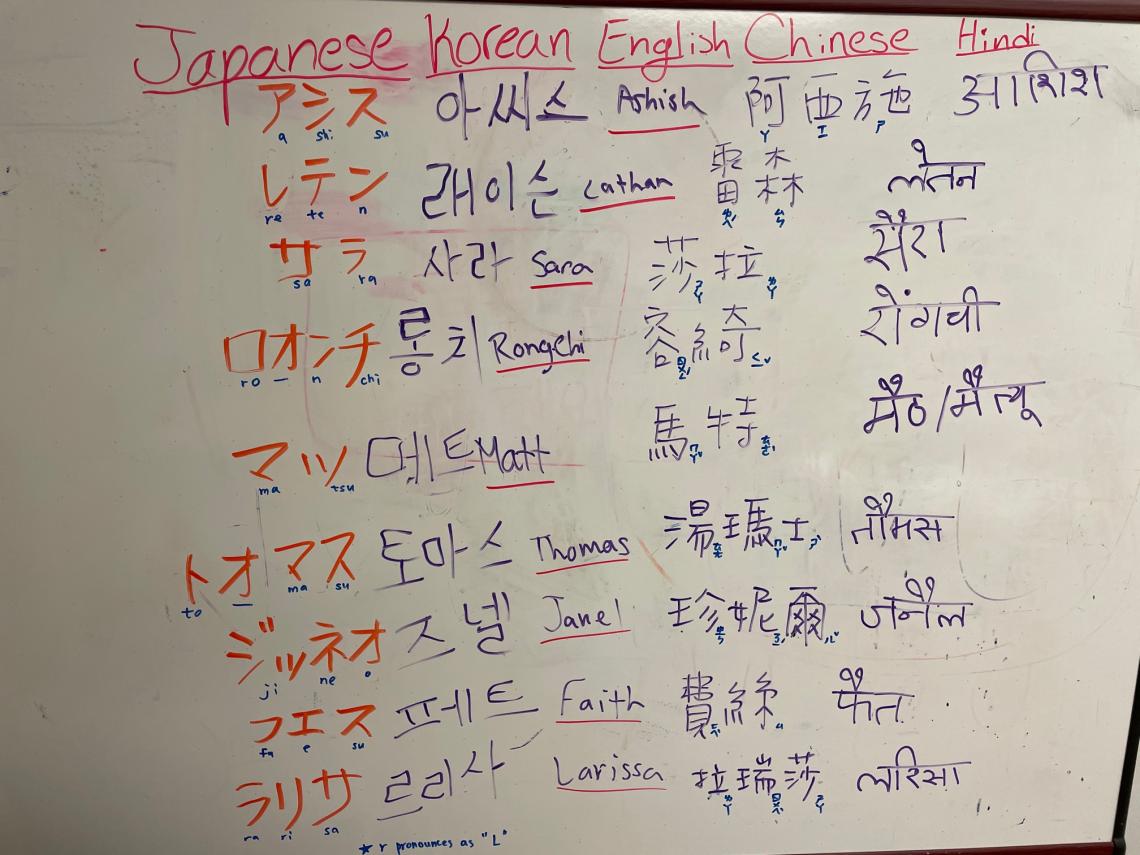 Japanese Korean English Chinese Hindi
アシス 아씨스 Ashish 阿亞施 आशिश
a shi su ㄚ ㄧ ㄕ
レテン 래이슨 Lathan 雷森 लेतन
re te n ㄌㄟ ㄙㄣ
サラ 사라 Sara 莎拉 सैरा
sa ra ㄕㄚ ㄌㄚ
ロオンチ 롱치 Rongchi 容綺 रोंगची
ro – n chi ㄑㄧˇ
マツ 메트 Matt 馬特 मैठ/मैत्यू
ma tsu ㄇㄚˇ ㄊㄜˋ
トオマス 토마스 Thomas 湯瑪士 तौमस
to – ma su ㄊㄤ ㄇㄚˇ ㄕˋ
ジッネオ 즈넬 Janel 珍妮爾 जनैल
ji ne o ㄓㄣ ㄦˇ
フエス 프페트 Faith 費絲 फैत
fa e su ㄈㄟˋ ㄙ
ラリサ 르리사 Larissa 拉瑞莎 लरिसा
ra ri sa ㄌㄚ ㄖㄟˋ ㄕㄚ
* r pronounces as "L"